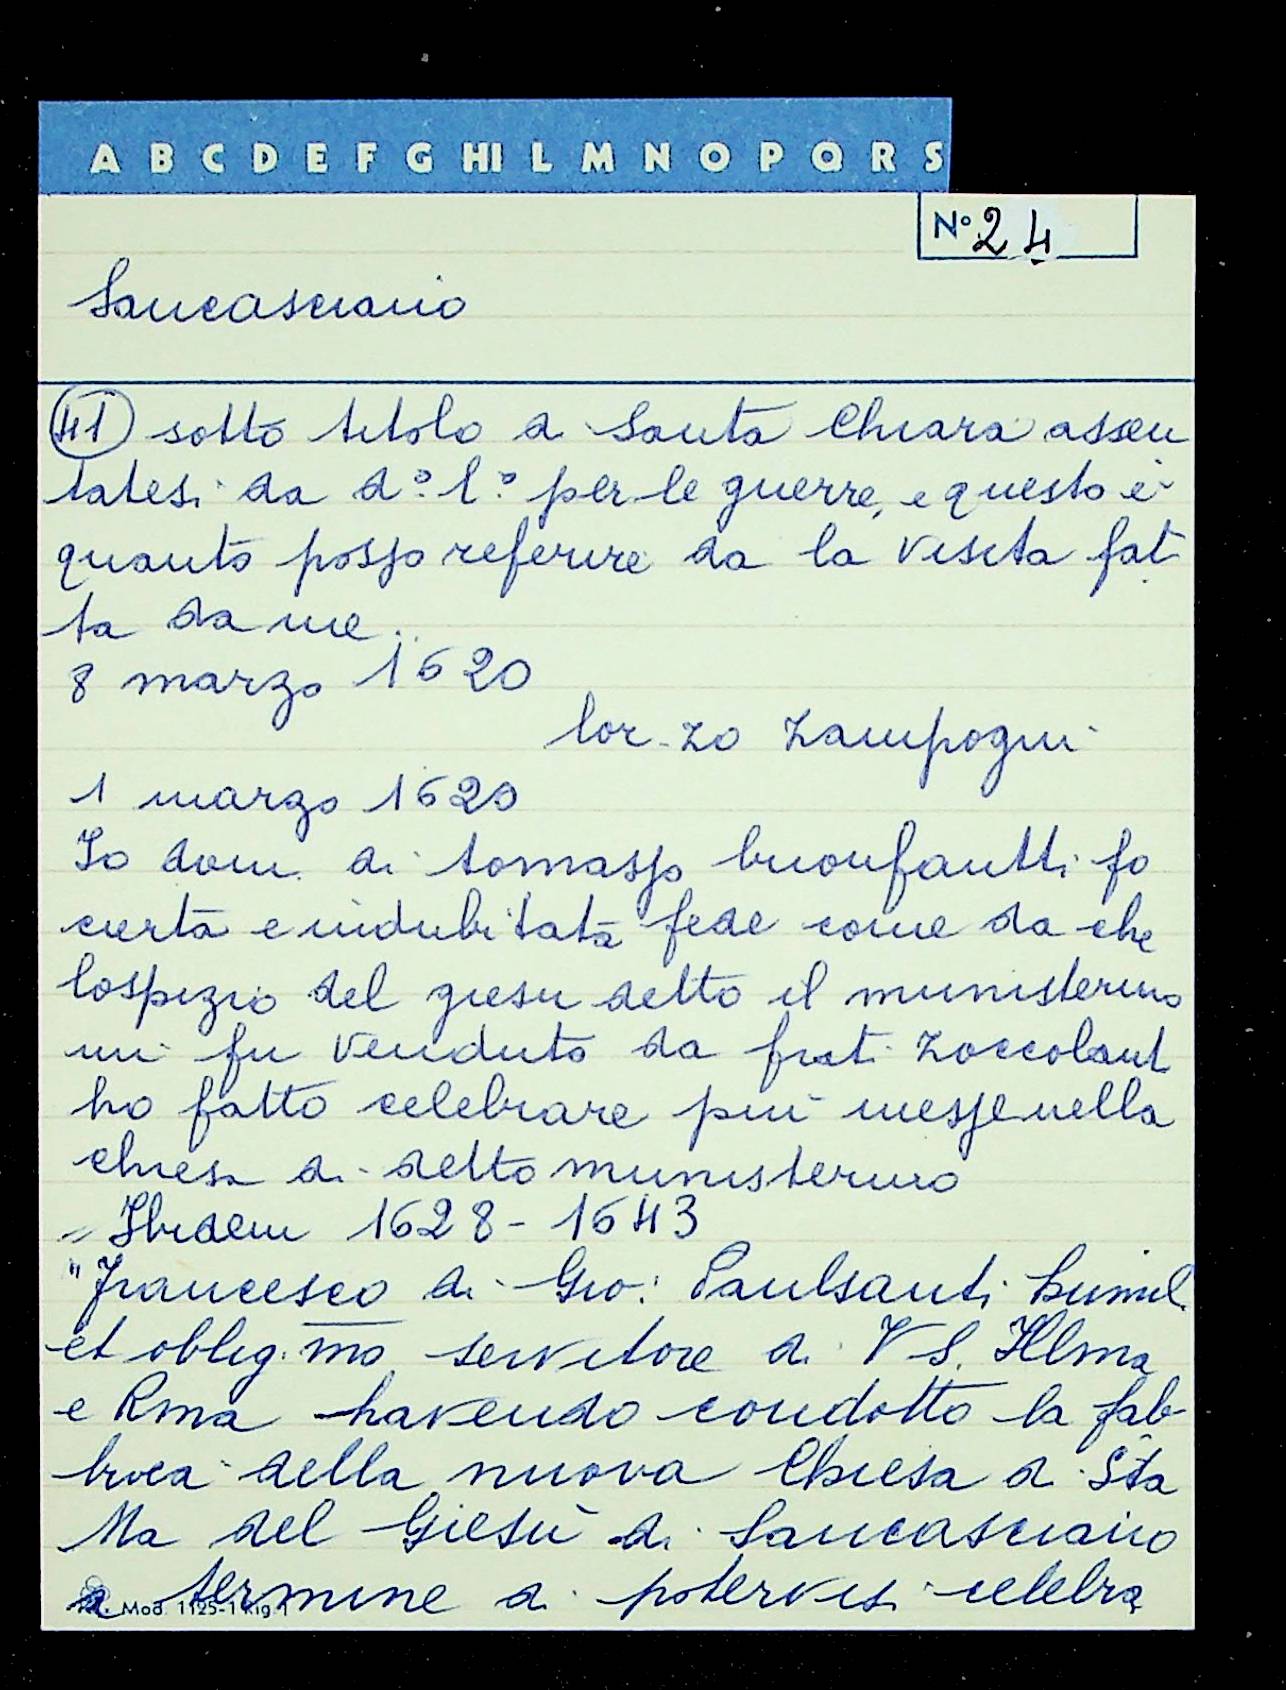 A B C D E F G HI L M N O P Q R S
N° 24
Sancasciano
41 sotto titolo di Santa Chiara assen
tatesi da d.° l.° per le guerre, e questo è
quanto posso referire da la visita fat
ta da me.
8 marzo 1620
lor-zo Zampogni
1 marzo 1620
Io dom. di tomasso buonfantti fo
certa e indubitata fede come da che
lospizio del giesu detto il munisterino
mi fu venduto da frati zoccolant
ho fatto celebrare più messe nella
chiesa di detto munisterino
= Ibidem 1628 - 1643
"Francesco di Gio: Paulsanti humil.
et oblig.mo servitore di V S. Illma
e Rma havendo condotto la fab
brica della nuova Chiesa di Sta
Ma del Giesù di Sancasciano
a termine di potervisi celebra
Mod. 1125-1 Rig. 1